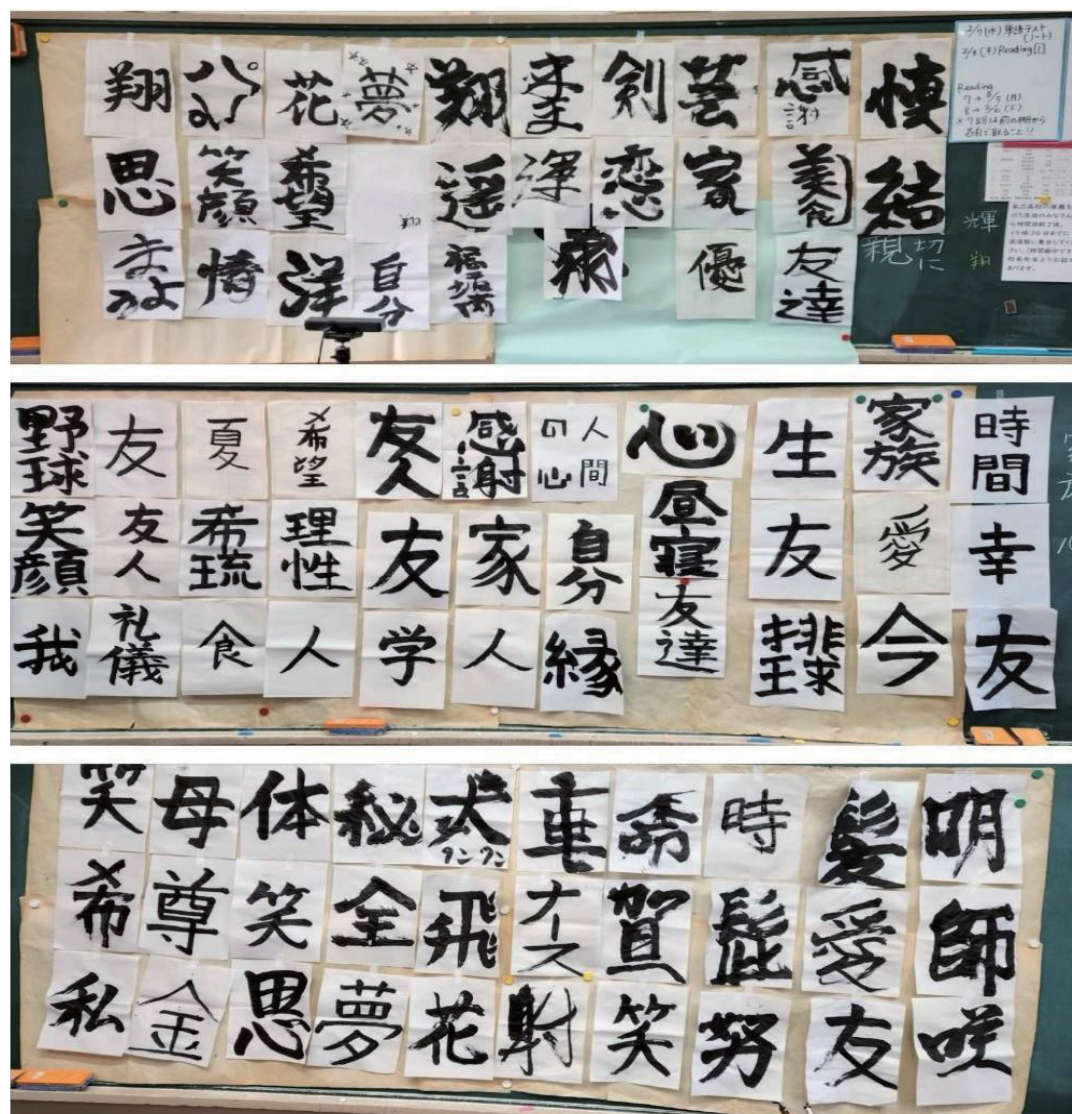 翔 パパ 花 夢 翔 剣 芸 感謝 慎
思 笑顔 希望 翔 遥 深 恋 家 美食 結
情 洋 自分 優 友達
親切に
光輝
翔
Reading
野球 友 夏 希望 友人 感謝 人間の心 心 生 家族 時間
笑顔 友人 希琉 理性 友 家 自分 昼寝 友 愛 幸
我 礼儀 食 人 学 人 縁 友達 排球 今 友
笑 母 体 秘 犬 クンクン 車 命 時 髪 明
希 尊 笑 全 飛 ナース 賀 髭 愛 師
私 金 思 夢 花 射 笑 努 友 咲